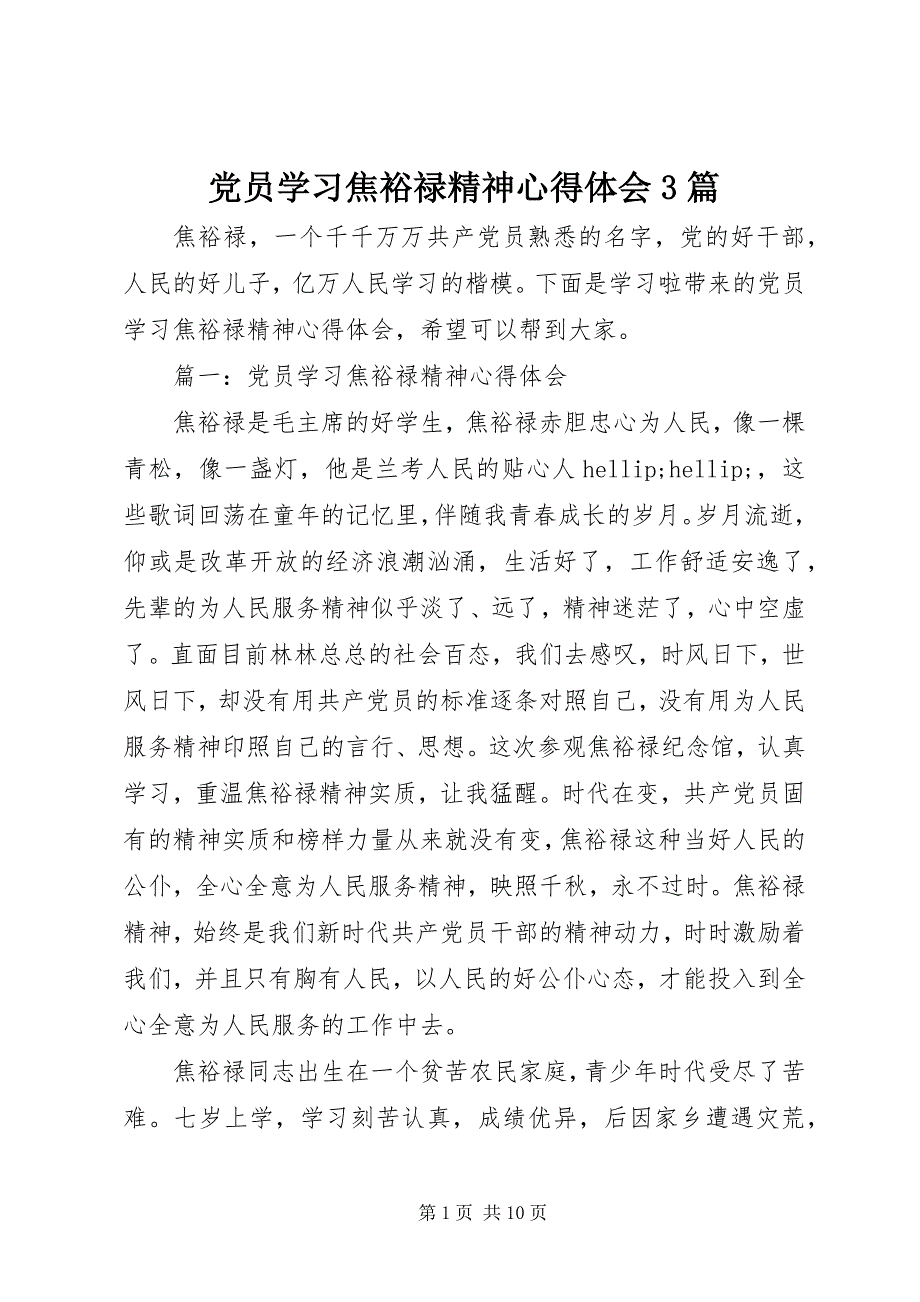 党员学习焦裕禄精神心得体会 3 篇
焦裕禄，一个千千万万共产党员熟悉的名字，党的好干部，
人民的好儿子，亿万人民学习的楷模。下面是学习啦带来的党员
学习焦裕禄精神心得体会，希望可以帮到大家。
篇一：党员学习焦裕禄精神心得体会
焦裕禄是毛主席的好学生，焦裕禄赤胆忠心为人民，像一棵
青松，像一盏灯，他是兰考人民的贴心人 hellip;hellip;，这
些歌词回荡在童年的记忆里，伴随我青春成长的岁月。岁月流逝，
仰或是改革开放的经济浪潮汹涌，生活好了，工作舒适安逸了，
先辈的为人民服务精神似乎淡了、远了，精神迷茫了，心中空虚
了。直面目前林林总总的社会百态，我们去感叹，时风日下，世
风日下，却没有用共产党员的标准逐条对照自己，没有用为人民
服务精神印照自己的言行、思想。这次参观焦裕禄纪念馆，认真
学习，重温焦裕禄精神实质，让我猛醒。时代在变，共产党员固
有的精神实质和榜样力量从来就没有变，焦裕禄这种当好人民的
公仆，全心全意为人民服务精神，映照千秋，永不过时。焦裕禄
精神，始终是我们新时代共产党员干部的精神动力，时时激励着
我们，并且只有胸有人民，以人民的好公仆心态，才能投入到全
心全意为人民服务的工作中去。
焦裕禄同志出生在一个贫苦农民家庭，青少年时代受尽了苦
难。七岁上学，学习刻苦认真，成绩优异，后因家乡遭遇灾荒，
第 1 页 共 10 页